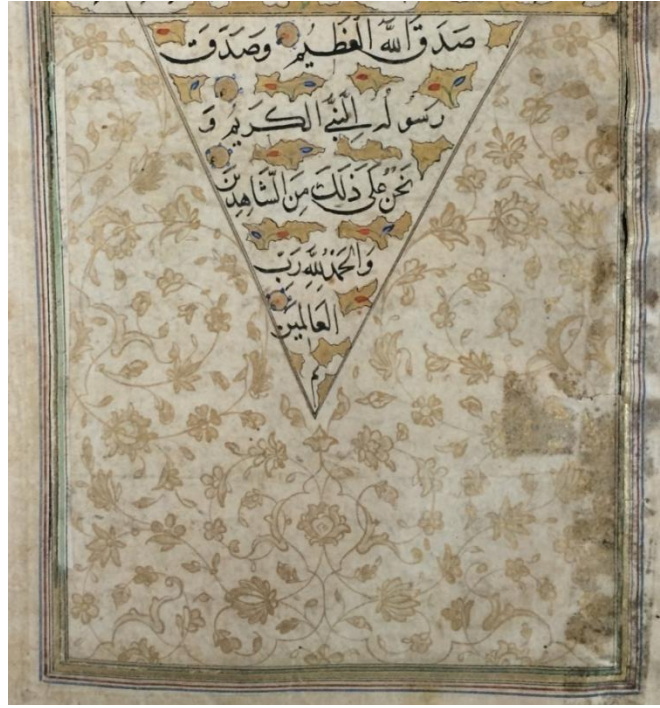 صَدَقَ اللّٰهُ الْعَظِيمُ وَصَدَقَ
رَسُولُهُ النَّبِيُّ الْكَرِيمُ وَ
نَحْنُ عَلَى ذَلِكَ مِنَ الشَّاهِدِينَ
وَالْحَمْدُ لِلّٰهِ رَبِّ
الْعَالَمِينَ
م